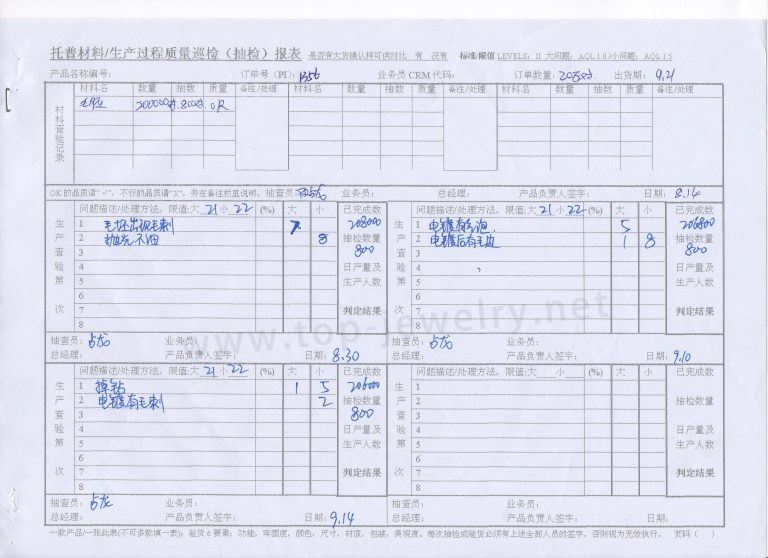 托普材料/生产过程质量巡检（抽检）报表 是否有大货确认样可供对比 有 没有 标准/限值 LEVELS: II 大问题: AQL 1.0/小问题: AQL 1.5
产品名称编号: 订单号（PI）: 1356 业务员 CRM 代码: 订单数量: 20万对 出货期: 9.21
材料名 数量 抽数 质量 备注/处理 材料名 数量 抽数 质量 备注/处理 材料名 数量 抽数 质量 备注/处理
毛坯 200000对 800对 OK
材料查验记录
OK 的品质请“√”，不行的品质请“X”，并在备注栏里说明。 抽查员: 业务员: 总经理: 产品负责人签字: 日期: 8.14
生产查验第 次
问题描述/处理方法。限值:大 21 小 22 (%) 大 小 已完成数
1 毛坯出现毛刺 7 208000
2 抛光不油 8 抽检数量
3 800
4 日产量及
5 生产人数
6
7 判定结果
8
抽查员: 占龙 业务员:
总经理: 产品负责人签字: 日期: 8.30
生产查验第 次
问题描述/处理方法。限值:大 21 小 22 (%) 大 小 已完成数
1 电镀有毛 5 206800
2 电镀后有毛边 1 8 抽检数量
3 800
4 日产量及
5 生产人数
6
7 判定结果
8
抽查员: 占龙 业务员:
总经理: 产品负责人签字: 日期: 9.10
生产查验第 次
问题描述/处理方法。限值:大 21 小 22 (%) 大 小 已完成数
1 掉钻 1 5 206000
2 电镀有毛刺 2 抽检数量
3 800
4 日产量及
5 生产人数
6
7 判定结果
8
抽查员: 占龙 业务员:
总经理: 产品负责人签字: 日期: 9.14
生产查验第 次
问题描述/处理方法。限值:大 小 (%) 大 小 已完成数
1
2 抽检数量
3
4 日产量及
5 生产人数
6
7 判定结果
8
抽查员: 业务员:
总经理: 产品负责人签字: 日期:
一款产品/一张此表(不可多款填一表)；验货 6 要素: 功能，牢固度，颜色，尺寸，材质，包装，美观度。每次抽检或验货必须有上述全部人员的签字，否则视为无效执行。 页码（ ）
www.top-jewelry.net